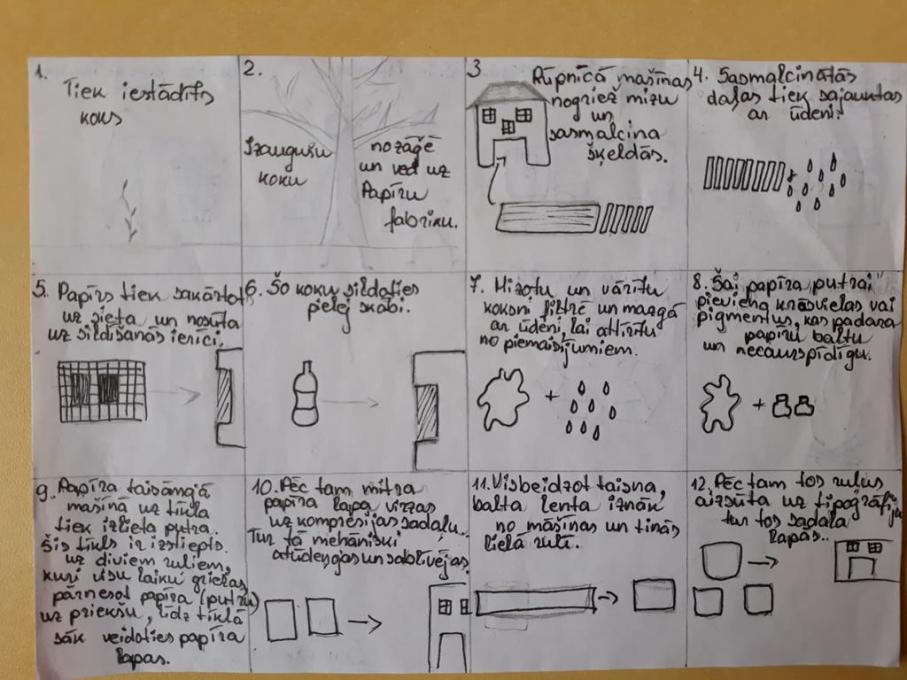 1.
Tiek iestādīts
koks
2.
Izaugušu
koku
nozāģē
un ved uz
Papīru
fabriku.
3
Rūpnīcā mašīnas
nogriež mizu
un
sasmalcina
šķeldās.
4. Sasmalcinātās
daļas tiek sajauktas
ar ūdeni.
5. Papīrs tiek sakārtots
uz sieta un nosūta
uz sildīšanās ierīci.
6. Šo koku sildoties
pielej skābi.
7. Mizotu un vārītu
koksni filtrē un mazgā
ar ūdeni, lai attīrītu
no piemaisījumiem.
8. Šai papīra putrai
pievieno krāsvielas vai
pigmentus, kas padara
papīru baltu
un necaurspīdīgu.
9. Papīra taisāmajā
mašīnā uz tīkla
tiek izlieta putra.
Šis tīkls ir izstiepts
uz diviem ruļiem,
kuri visu laiku griežas
pārnesot papīra (putru)
uz priekšu, līdz tīklā
sāk veidoties papīra
lapas.
10. Pēc tam mitra
papīra lapa virzas
uz kompresijas sadaļu.
Tur tā mehāniski
atūdeņojas un sablīvējas.
11. Visbeidzot taisna,
balta lenta iznāk
no mašīnas un tinās
lielā rullī.
12. Pēc tam tos ruļus
aizsūta uz tipogrāfiju
tur tos sadala
lapās..